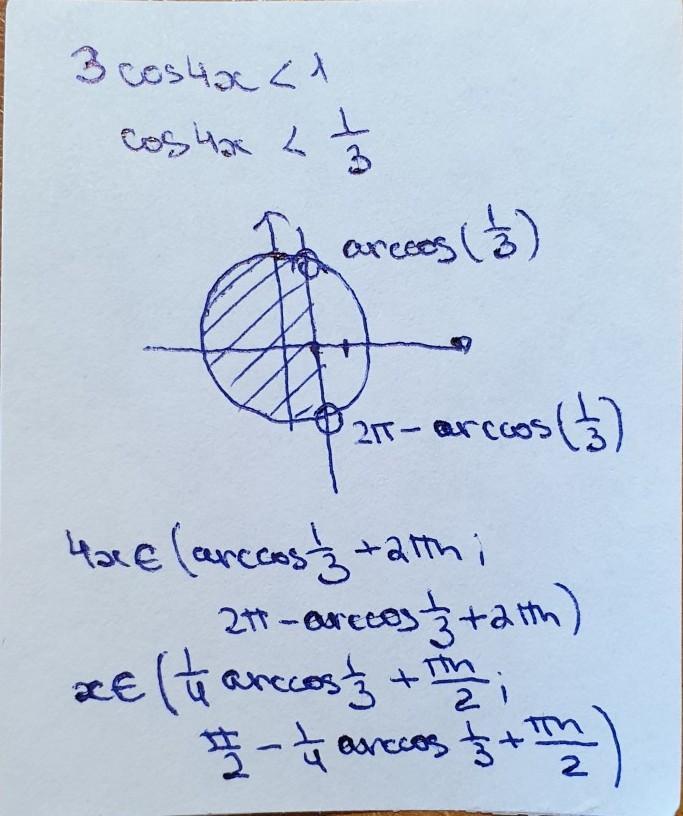 3cos4x < 1
cos4x < 1/3
arccos(1/3)
2π - arccos(1/3)
4x∈(arccos 1/3 + 2πn;
2π - arccos 1/3 + 2πn)
x∈(1/4 arccos 1/3 + πn/2;
π/2 - 1/4 arccos 1/3 + πn/2)